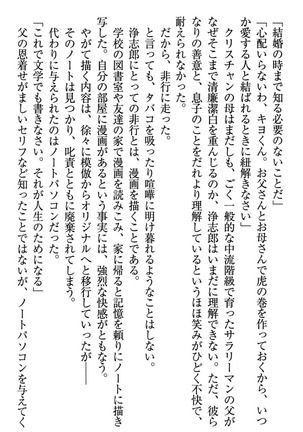 「結婚の時まで知る必要のないことだ」
「心配いらないわ、キヨくん。お父さんとお母さんで虎の巻を作っておくから、いつ
か愛する人と結ばれるときに紐解きなさい」
クリスチャンの母はまだしも、ごく一般的な中流階級で育ったサラリーマンの父が
なぜそこまで清廉潔白を重んじるのか、浄志郎はいまだに理解できない。ただ、彼ら
なりの善意と、息子のことをだれより理解しているというほほ笑みがひどく不快で、
耐えられなかった。
だから、非行に走った。
と言っても、タバコを吸ったり喧嘩に明け暮れるようなことはしない。
浄志郎にとっての非行とは、漫画を描くことだった。
学校の図書室や友達の家で漫画を読みこみ、家に帰ると記憶を頼りにノートに描き
写した。自分の部屋に漫画があるという事実には、強烈な快感がともなう。
やがて描く内容は、徐々に模倣からオリジナルへと移行していったが――
そのノートは見つかり、叱責とともに廃棄されてしまう。
代わりに与えられたのはノートパソコンだった。
「これで文学でも書きなさい。それが人生のためになる」
父の恩着せがましいセリフなど知ったことではないが、ノートパソコンを与えてく